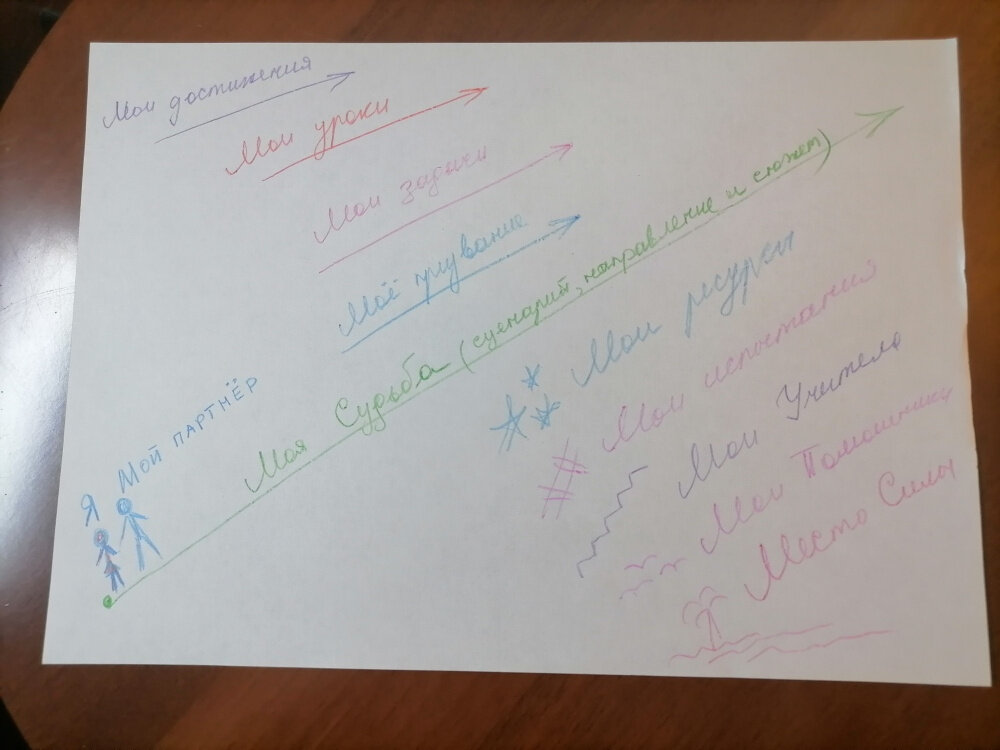 Мои достижения
Мои уроки
Мои задачи
Моё призвание
Моя Судьба (сценарий, направление и сюжет)
Я
Мой партнёр
Мои ресурсы
Мои испытания
Мои Учителя
Мои Помощники
Место Силы